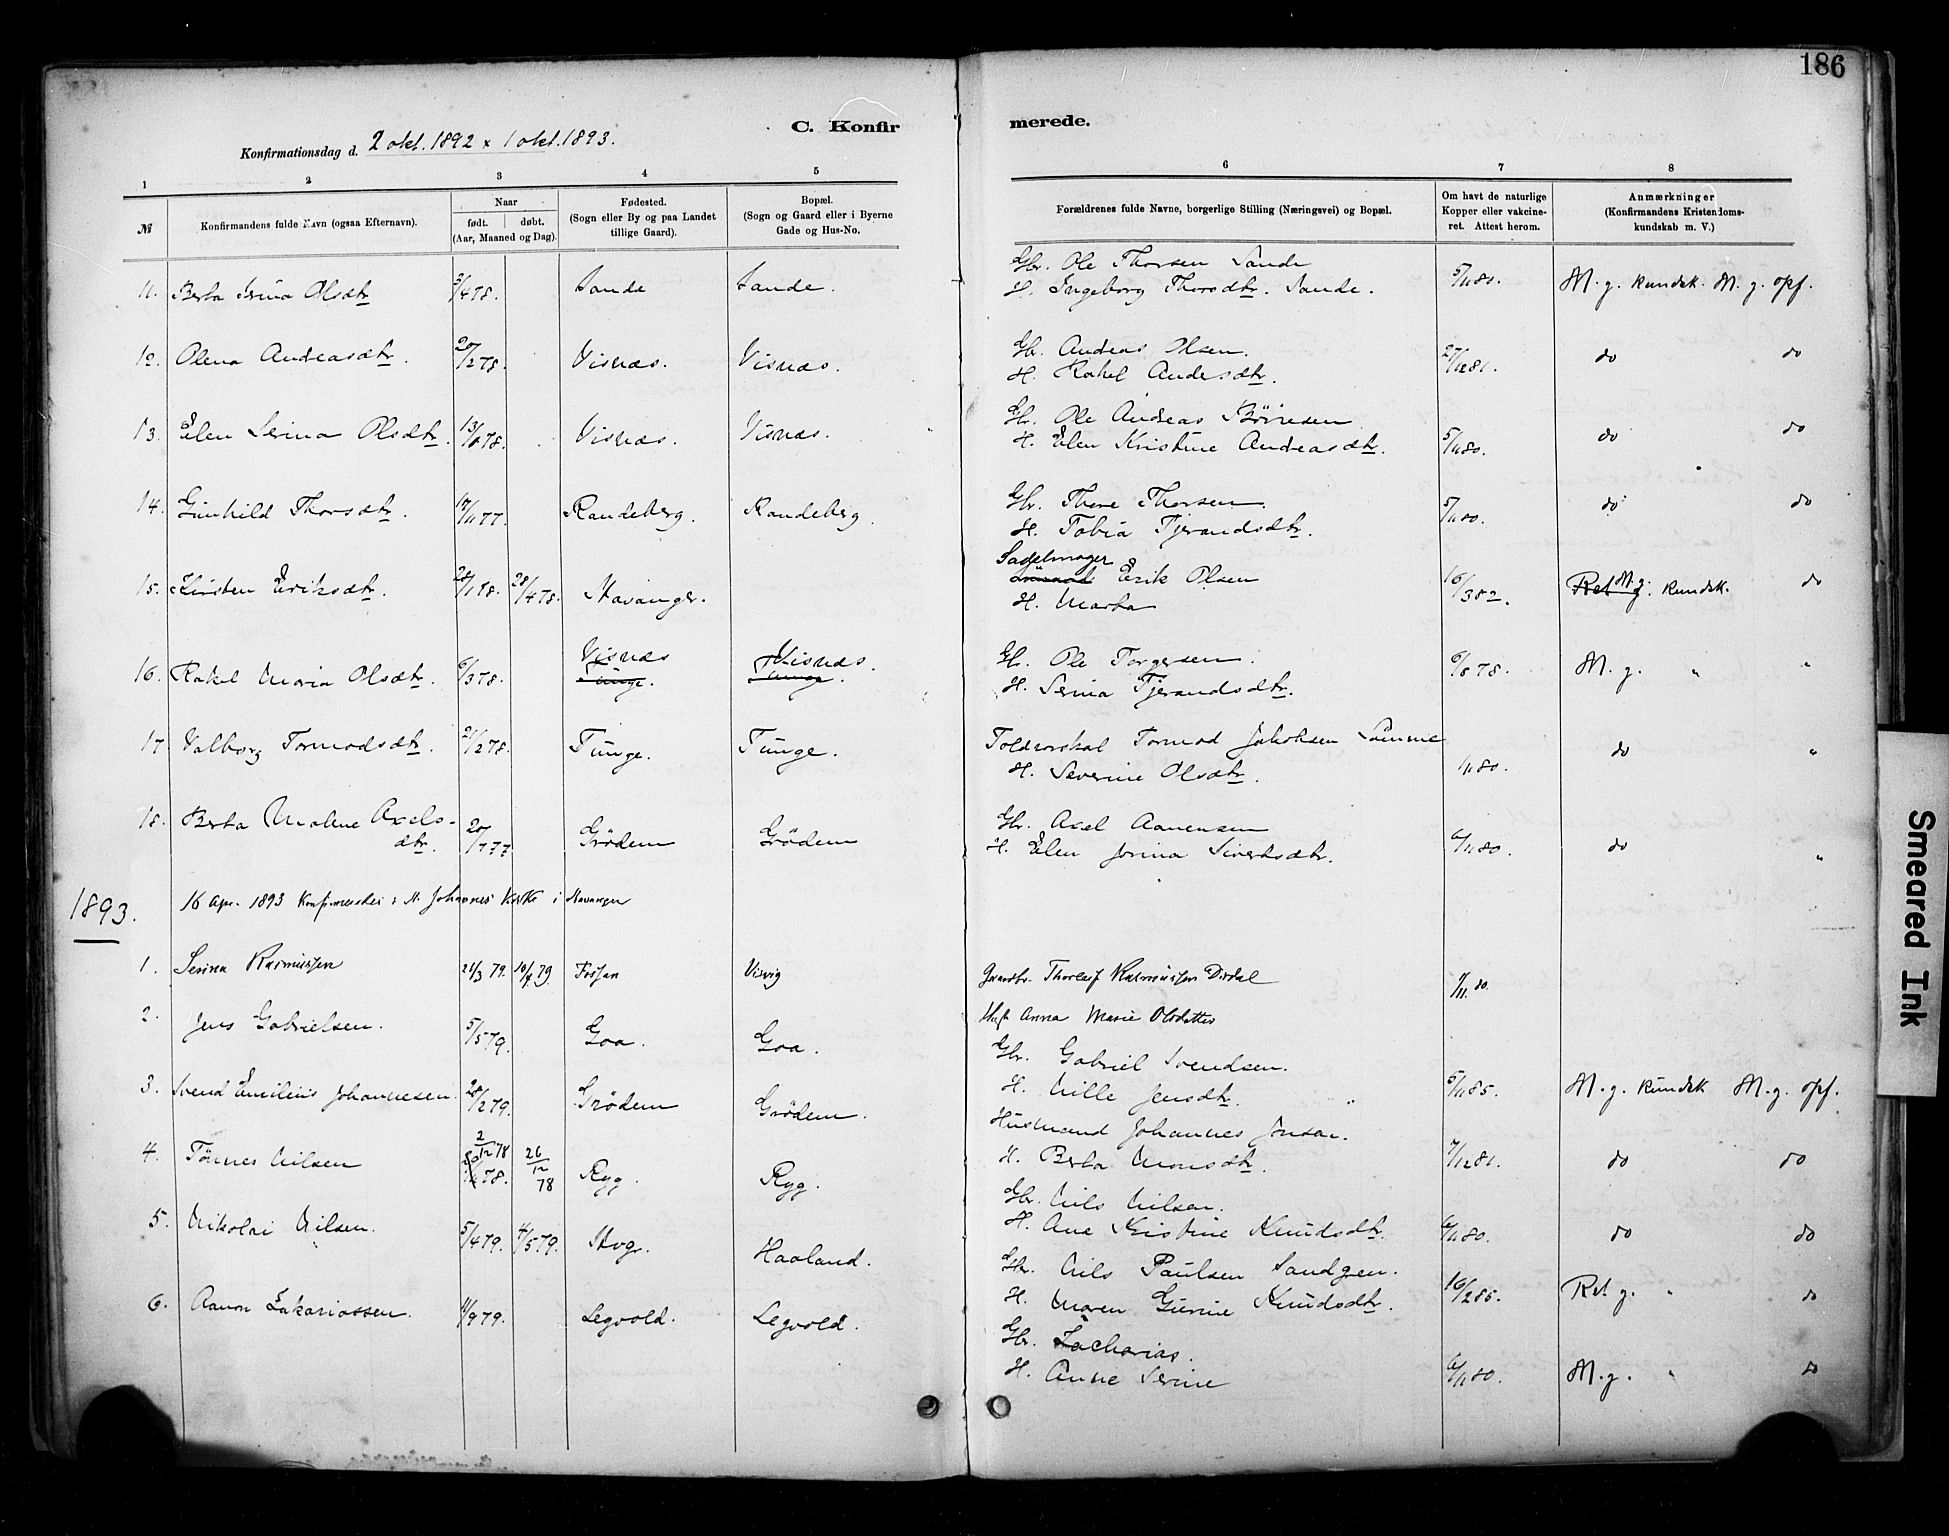 186
C. Konfir
merede.
Konfirmationsdag d. 2 okt. 1892 x 1 okt. 1893.
1 2 3 4 5 6 7 8
№
Konfirmandens fulde Navn (ogsaa Efternavn).
Naar
født. døbt.
(Aar, Maaned og Dag).
Fødested.
(Sogn eller By og paa Landet
tillige Gaard).
Bopæl.
(Sogn og Gaard eller i Byerne
Gade og Hus-No.
Forældrenes fulde Navne, borgerlige Stilling (Næringsvei) og Bopæl.
Om havt de naturlige
Kopper eller vakcine-
ret. Attest herom.
Anmærkninger
(Konfirmandens Kristendoms-
kundskab m. V.)
Gbr. Ole Thorsen Sande
11. Berta Serina Olsdtr 3/4 78. Sande Sande. H. Ingeborg Thorsdtr. Sande. 5/11 80. M. g. kundsk. M. g. opf.
Gbr. Andreas Olsen.
12. Olena Andreasdtr. /2 78. Visnæs. Visnæs. H. Rakel Andersdtr. 27/12 81. do do
Gbr. Ole Andreas
13. Elen Serina Olsdtr. 13/6 78. Visnæs. Visnæs. H. Elen Kristine Andreasdtr. 5/11 80. do do
Gbr. Thore Thorsen
14. Gunhild Thorsdtr. 17/11 77. Randeberg. Randeberg. H. Tobia Tjerandsdtr. 5/11 80. do do
Sadelmager
15. Kirsten Eriksdtr. 28/1 78. 28/4 78. Stavanger. Erik Olsen
H. Marta 16/3 82. Ret M. g. kundsk. do
Visnæs Visnæs.
16. Rakel Maria Olsdtr. 6/3 78. Tunge. Tunge. Gbr. Ole Torgersen.
H. Serina Tjerandsdtr. 6/8 78. M. g. " "
17. Valborg Tormodsdtr. 21/2 78. Tunge. Tunge. Tormod Jakobsen
H. Severine Olsdtr. 1/11 80. do "
18. Berta Malene Axels-
dtr. 20/ 77. Grödem Grödem Gbr. Axel Aanensen
H. Elen Jorina Sivertsdtr. 6/11 80. do "
1893.
16 Apr. 1893 Konfirmeredes i St. Johannes Kirke i Stavanger
1. Serina Rasmussen 21/3 79. 10/4 79. Fossan Visvig Gaardbr. Thorleif Rasmussen Dirdal 1/11 80.
Hust. Anna Marie Olsdatter
2. Jens Gabrielsen. 5/5 79. Goa. Goa. Gbr. Gabriel Svendsen.
H. Nille Jensdtr. " 5/11 85. M. g. kundsk M. g. opf.
3. Svend Emilius Johannesen. 28/2 79. Grödem Grödem. Husmand Johannes Jonsen.
H. Berta Monsdtr. 7/12 81. do do
2/12 78 26/12 78
4. Tönnes Nilsen 78. Ryg. Ryg. Gbr. Nils Nilsen.
H. Ane Kristine Knudsdtr. 6/11 80. do do
5. Nikolai Nilsen. 5/4 79. 4/5 79. Stvgr. Haaland. Gbr. Nils Paulsen
H. Maren Gurine Knudsdtr. 16/2 85. Ret g. " do
6. Aanon Zakariassen. 11/9 79. Legvold. Legvold. Gbr. Zacharias.
H. Anne Serine 6/11 80. M. g. " do
Smeared Ink